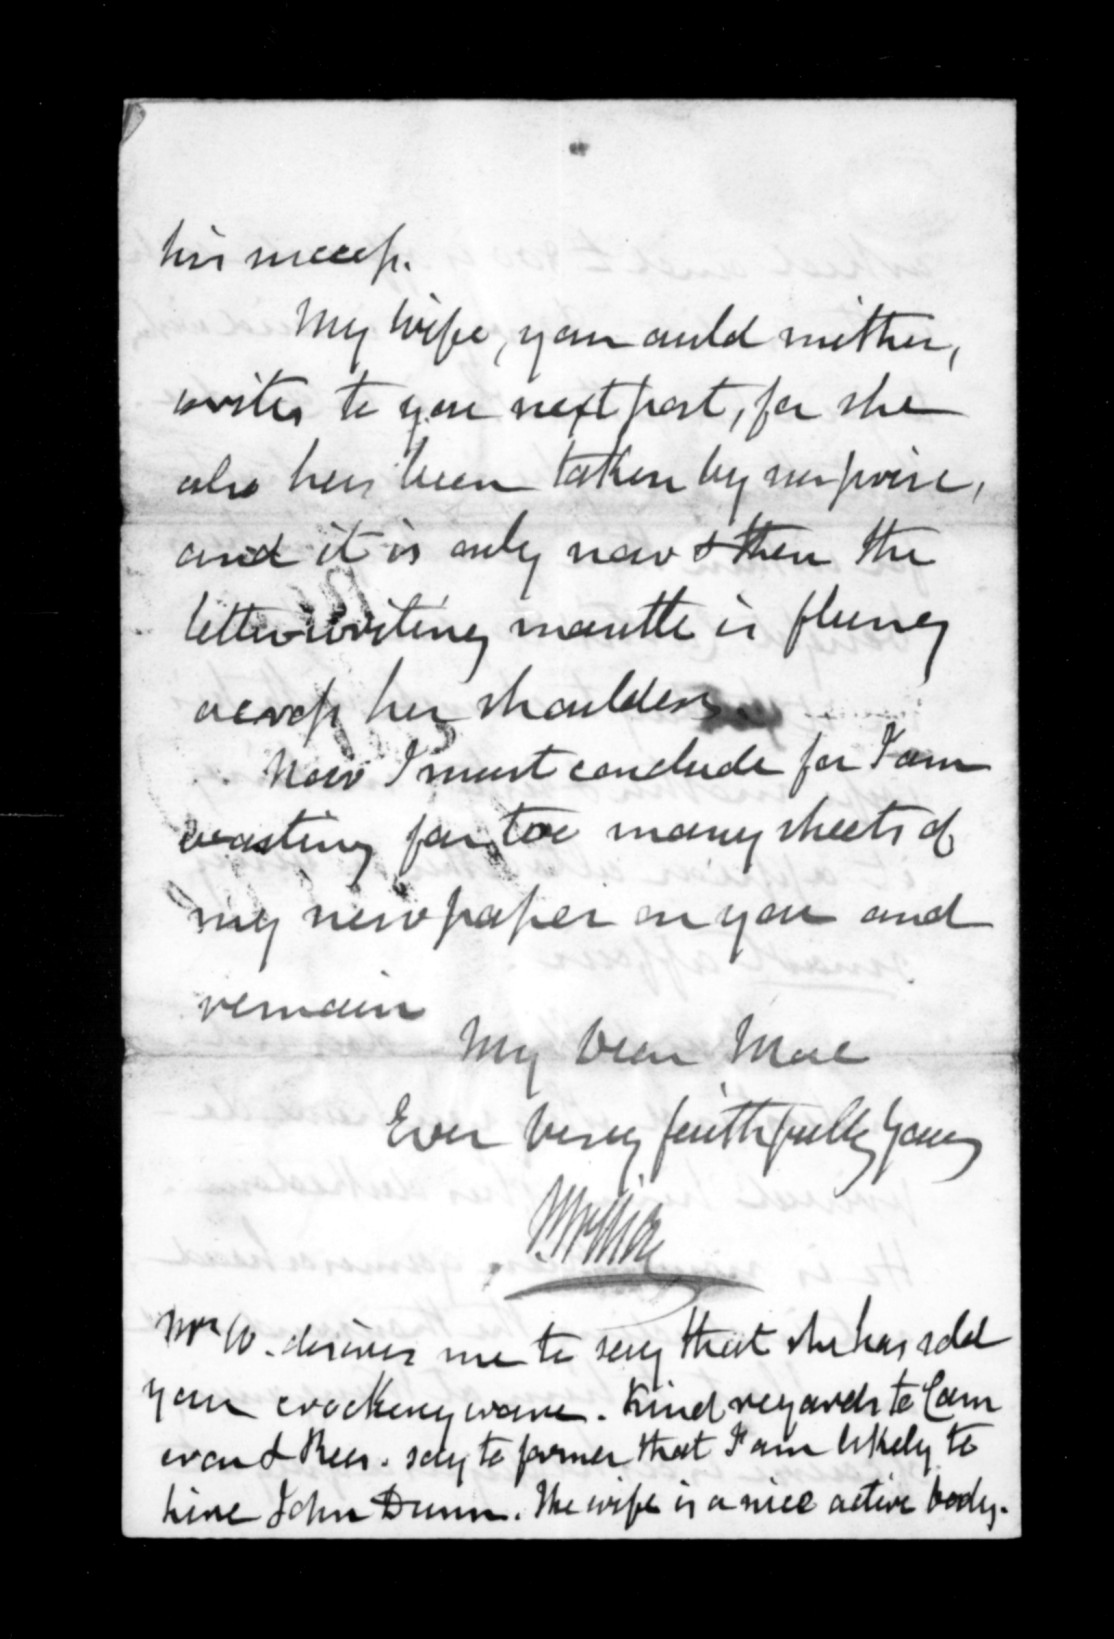 his success.
My wife, your auld mither,
writes to you next post, for she
also has been taken by surprise,
and it is only now & then the
letter writing mantle is flung
across her shoulders.
Now I must conclude for I am
wasting far too many sheets of
my newspaper on you and
remain
My Dear Mac
Ever Very faithfully Yours
Mrs W. desires me to say that she has sold
your crockeryware. Kind regards to Cam
eron & Rees. say to former that I am likely to
hire John Dunn. The wife is a nice active body.